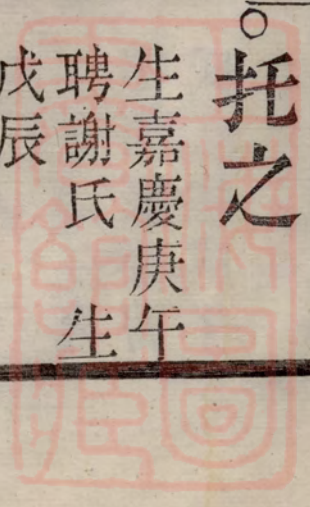 ○托之
生嘉慶庚午
聘謝氏　生
戊辰